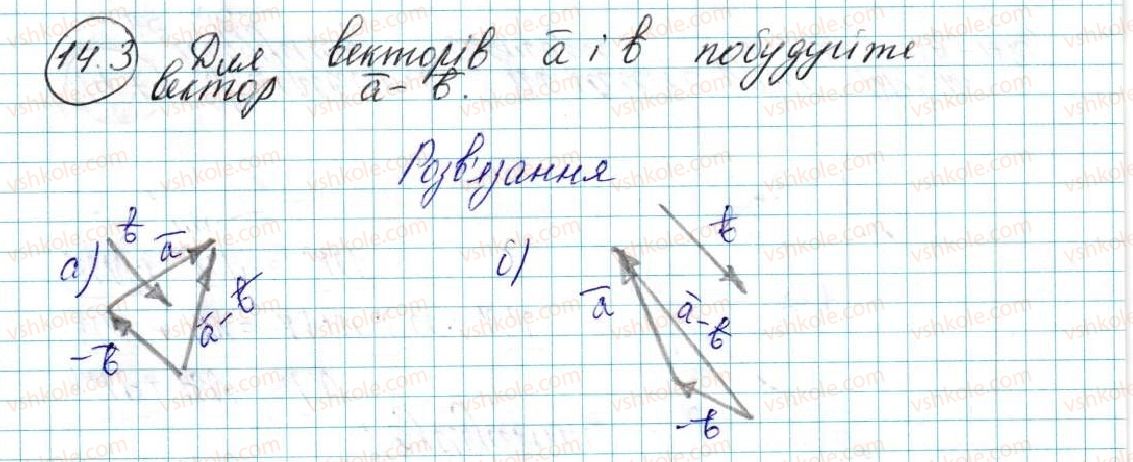 14.3 Для векторів a̅ і b̅ побудуйте
вектор a̅ - b̅.
Розв'язання
а) b̅ a̅
-b̅ a̅ - b̅
б) b̅
a̅ a̅ - b̅
-b̅
vshkole.com